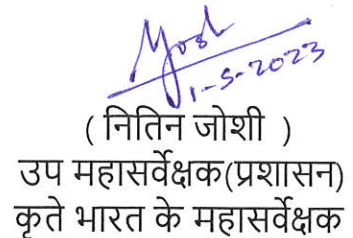 Josh
1-5-2023
( नितिन जोशी )
उप महासर्वेक्षक(प्रशासन)
कृते भारत के महासर्वेक्षक